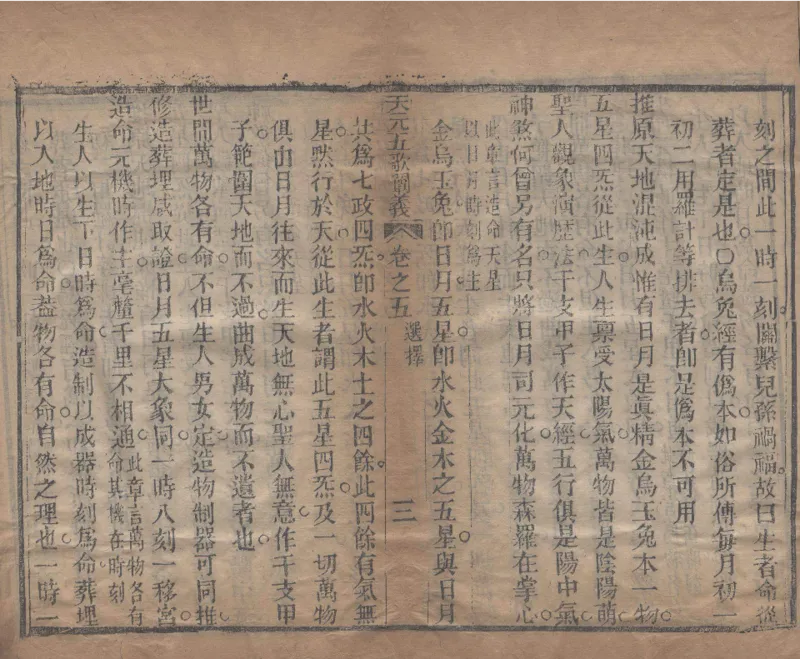 刻之間此一時一刻關繫兒孫禍福故曰生者命從
葬者定是也〇烏兔經有僞本如俗所傳每月初一
初二用羅計等排去者卽是僞本不可用
推原天地混沌成惟有日月是眞精金烏玉兔本一物
五星四炁從此生人生禀受太陽氣萬物皆是陰陽萌
聖人觀象演歷法干支甲子作天經五行俱是陽中氣
神煞何曾另有名只將日月司元化萬物森羅在掌心
此章言造命天星
以日月時刻爲主
金烏玉兔卽日月五星卽水火金木之五星與日月
天元五歌闡義
卷之五
選擇
三
共爲七政四炁卽水火木土之四餘此四餘有氣無
星黙行於天從此生者謂此五星四炁及一切萬物
俱由日月往來而生天地無心聖人無意作干支甲
子範圍天地而不過曲成萬物而不遺者也
世間萬物各有命不但生人男女定造物制器可同推
修造葬埋咸取證日月五星大象同一時八刻一移宮
造命元機時作主毫釐千里不相通
此章言萬物各有
命其機在時刻
生人以生下日時爲命造制以成器時刻爲命葬埋
以入地時日爲命葢物各有命自然之理也一時一